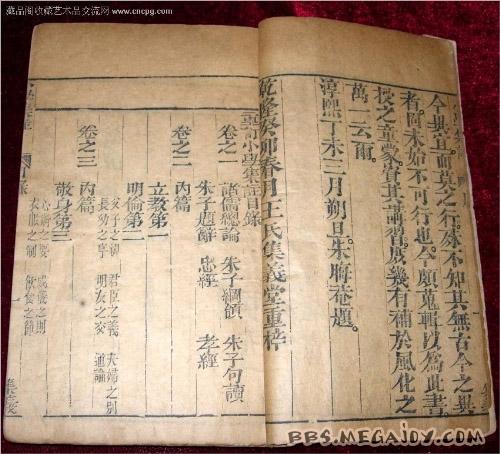 藏品阁收藏艺术品交流网
www.cncpg.com
今異宜而莫之行。殊不知其無古今之異
者。固未始不可行也。今頗蒐輯以為此書。
授之童蒙。資其講習。庶幾有補於風化之
萬一云爾。
淳熙丁未三月朔旦。朱晦菴題。
乾隆癸卯春月王氏集義堂重梓
小學集註目錄
卷之一
諸儒總論 朱子綱領 朱子句讀
朱子題辭 忠經 孝經
卷之二
內篇
立教第一
明倫第二
父子之親 君臣之義 夫婦之別
長幼之序 朋友之交 通論
卷之三
內篇
敬身第三
心術之要 威儀之則
衣服之制 飲食之節
BBS.MEGAJOY.COM